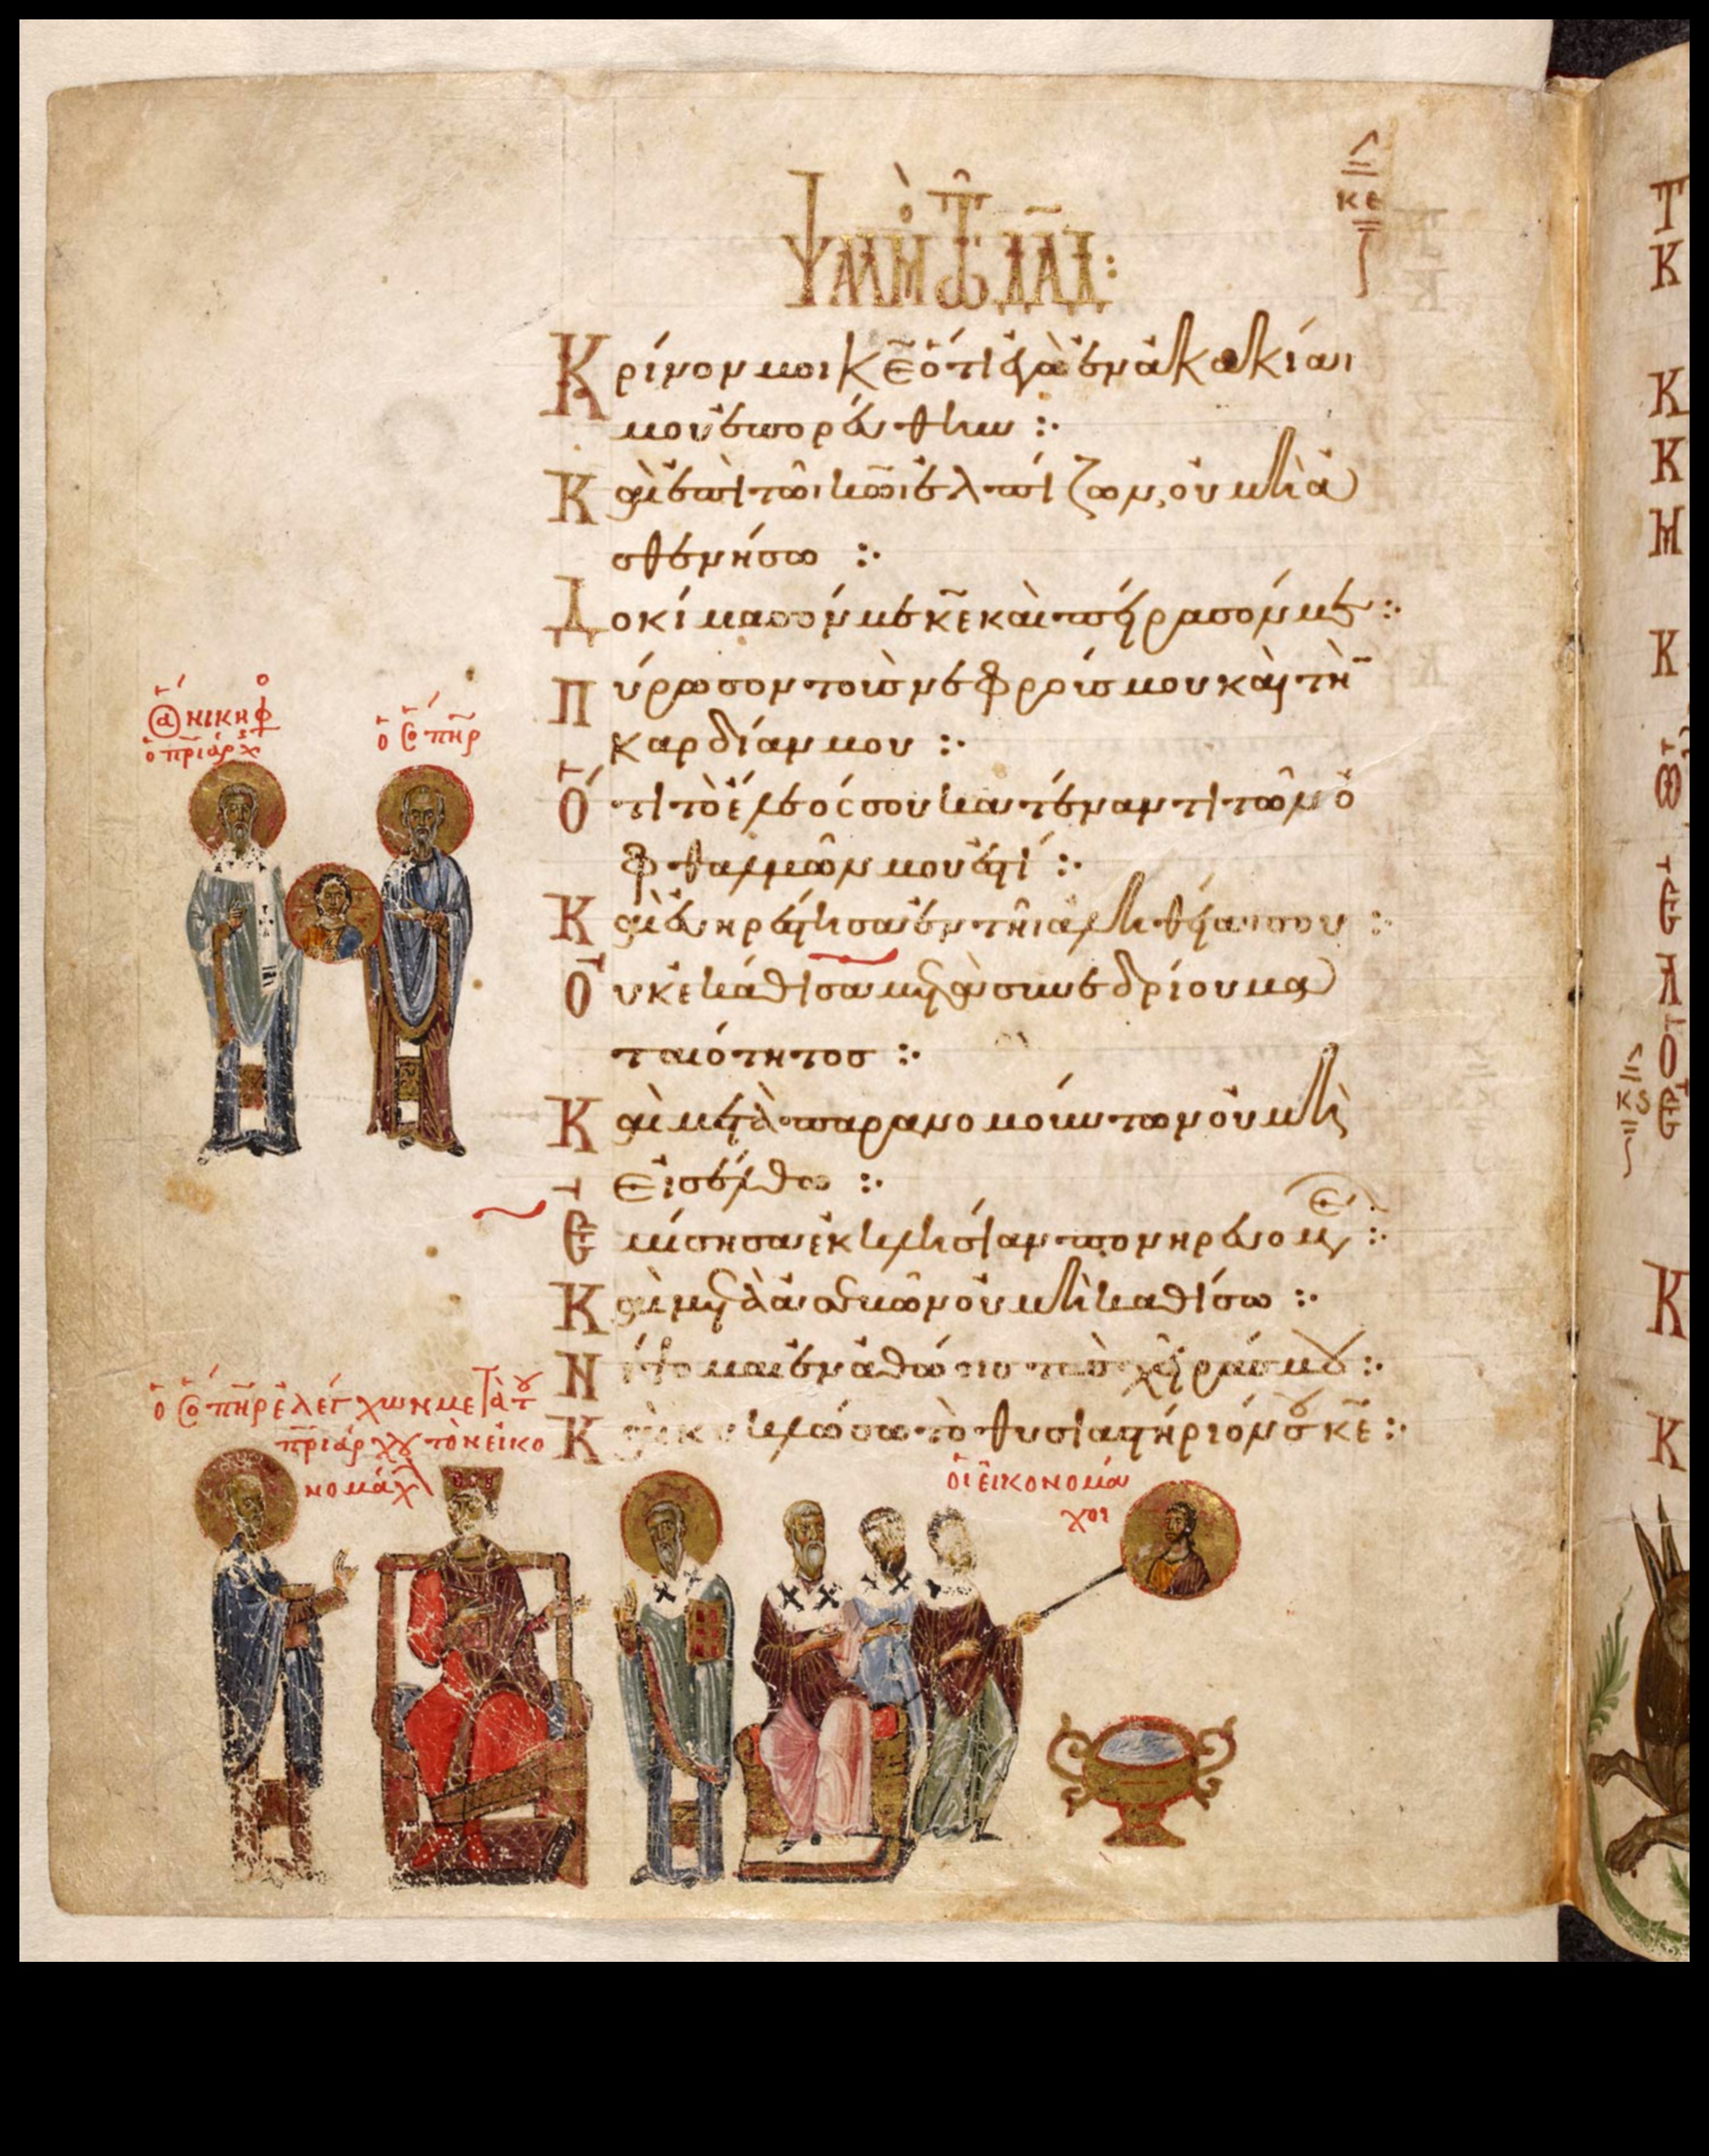 κε
ψαλμὸς τῷ δᾱδ:
Κρίνον μοι κ̅ε̅ ὅτι ἐγὼ ἐν ἀκακίαι
μου ἐπορεύθην :·
Καὶ ἐπὶ τῶι κ̅ω̅ι ἐλπίζων, οὐ μὴ ἀ
σθενήσω :·
Δοκίμασόν με κ̅ε̅ καὶ πείρασόν με :·
Πύρωσον τοὺς νεφρούς μου καὶ τὴν
καρδίαν μου :·
Ὅτι τὸ ἔλεός σου κατέναντι τῶν ὀ
φθαλμῶν μου ἐστί :·
Καὶ εὐηρέστησα ἐν τῆι ἀληθείαι σου :·
Οὐκ ἐκάθισα μετὰ συνεδρίου μα
ταιότητος :·
Καὶ μετὰ παρανομούντων οὐ μὴ
εἰσέλθω :·
Ἐμίσησα ἐκκλησίαν πονηρευομέ :·
Καὶ μετὰ ἀσεβῶν οὐ μὴ καθίσω :·
Νίψομαι ἐν ἀθώοις τὰς χεῖράς μου :·
Καὶ κυκλώσω τὸ θυσιαστήριόν σου κ̅ε̅ :·
ὁ ἅ νικηφο
ὁ π̅ρ̅ιάρχ
ὁ ὅ π̅η̅ρ
ὁ ὅ π̅η̅ρ ἐλέγχων μετὰ τοῦ
π̅ρ̅ιάρχου τὸν εἰκο
νομάχ
οἱ εἰκονομά
χοι
κς